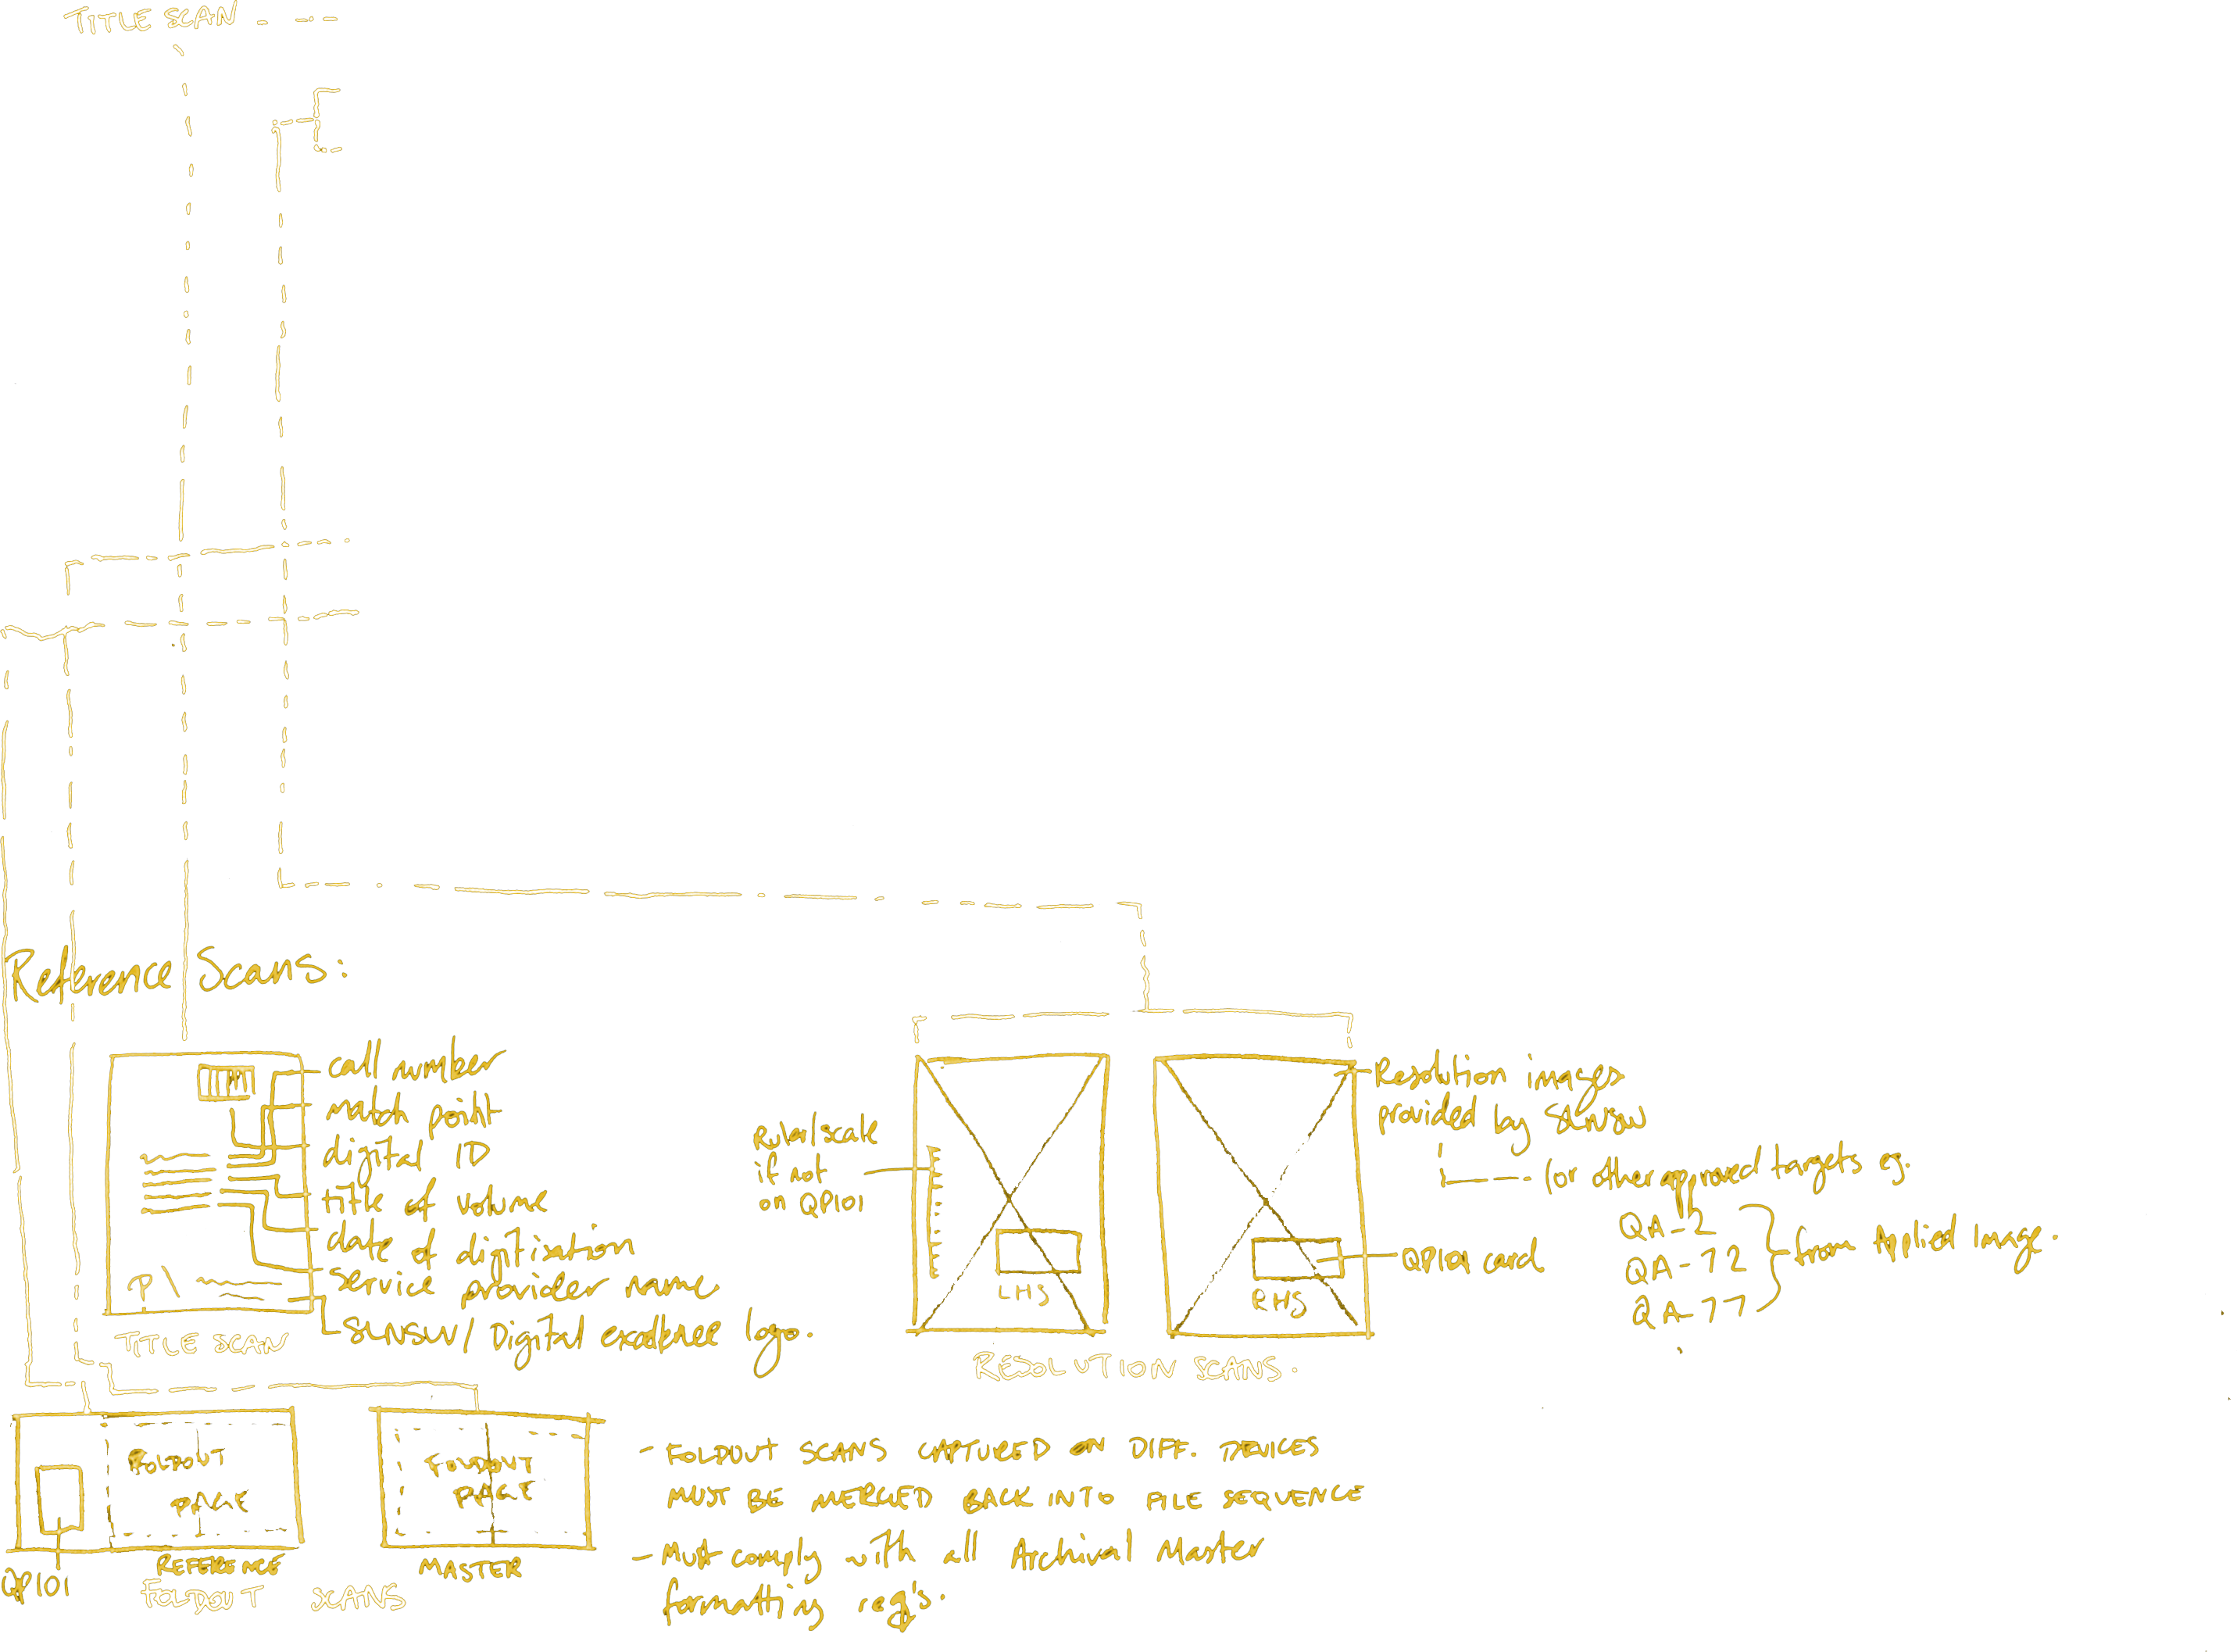 TITLE SCAN
Reference Scans:
call number
match point
digital ID
title of volume
date of digitization
service provider name
SLNSW / Digital excellence logo.
TITLE SCAN
Ruler/scale
if not
on QP101
LHS
RHS
Resolution images
provided by SLNSW
(or other approved targets eg.
QA-2
QA-72
QA-77
from Applied Image.
QP101 card
RESOLUTION SCANS.
FOLDOUT
PAGE
QP101
REFERENCE
FOLDOUT
PAGE
MASTER
FOLDOUT SCANS
- FOLDOUT SCANS CAPTURED ON DIFF. DEVICES
MUST BE MERGED BACK INTO FILE SEQUENCE
- Must comply with all Archival Master
formatting req's.